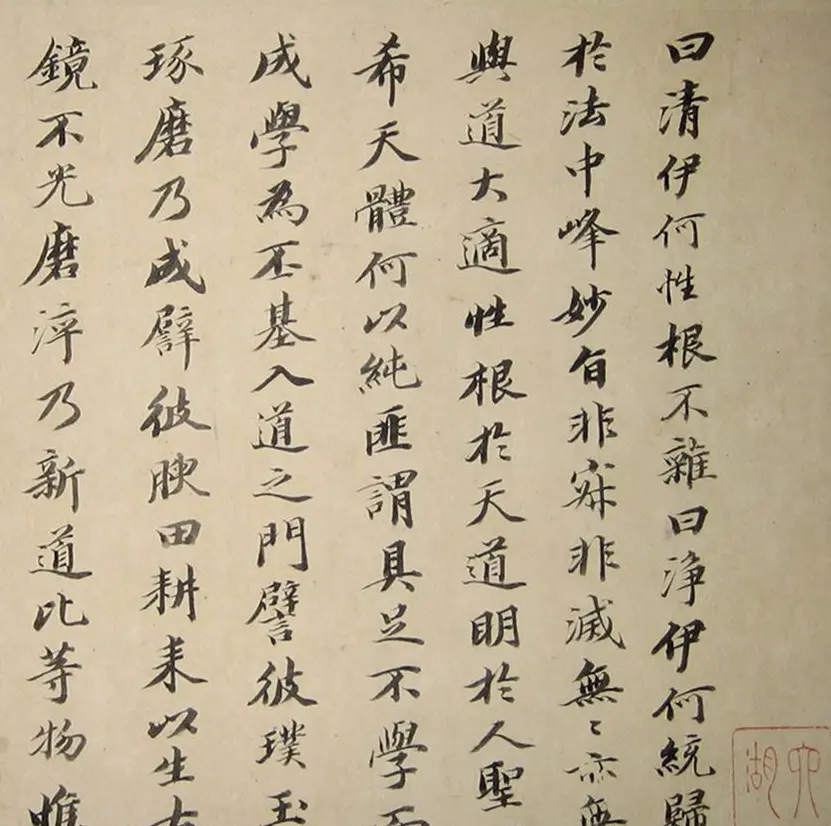 曰清伊何性根不雜曰淨伊何統歸
於法中峰妙旨非寂非滅無〻亦無
與道大適性根於天道明於人聖
希天體何以純匪謂具足不學而
成學為丕基入道之門譬彼璞玉
琢磨乃成譬彼腴田耕耒以生古
鏡不光磨淬乃新道比等物惟
湖